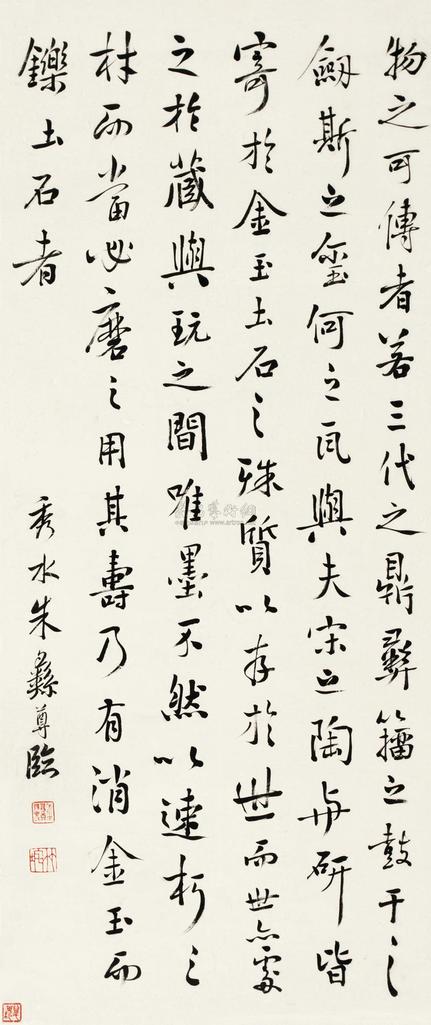 物之可傳者若三代之鼎彝籀之鼓干之
劔斯之璽何之瓦與夫宋之陶與研皆
寄於金玉土石之殊質以存於世而世亦處
之於藏與玩之間唯墨不然以速朽之
材而當必磨之用其壽乃有消金玉而
鑠土石者
秀水朱彝尊臨